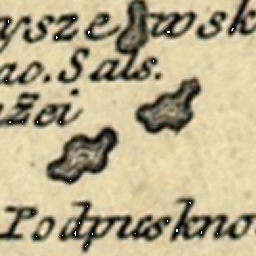 yszewsk
ao. Sals.
zei
Podpuskno